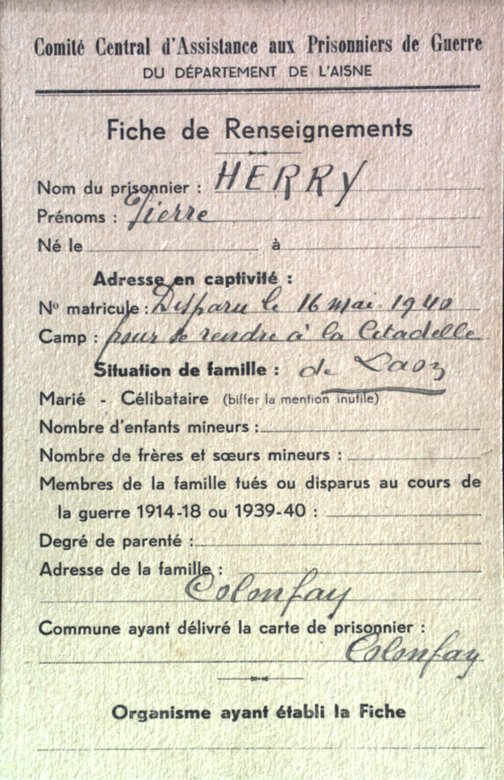 Comité Central d'Assistance aux Prisonniers de Guerre
DU DÉPARTEMENT DE L'AISNE
Fiche de Renseignements
Nom du prisonnier : HERRY
Prénoms : Pierre
Né le à
Adresse en captivité :
No matricule : Disparu le 16 mai 1940
Camp : pour se rendre à la Citadelle
Situation de famille : de Laon
Marié - Célibataire (biffer la mention inutile)
Nombre d'enfants mineurs :
Nombre de frères et sœurs mineurs :
Membres de la famille tués ou disparus au cours de
la guerre 1914-18 ou 1939-40 :
Degré de parenté :
Adresse de la famille :
Colonfay
Commune ayant délivré la carte de prisonnier :
Colonfay
Organisme ayant établi la Fiche